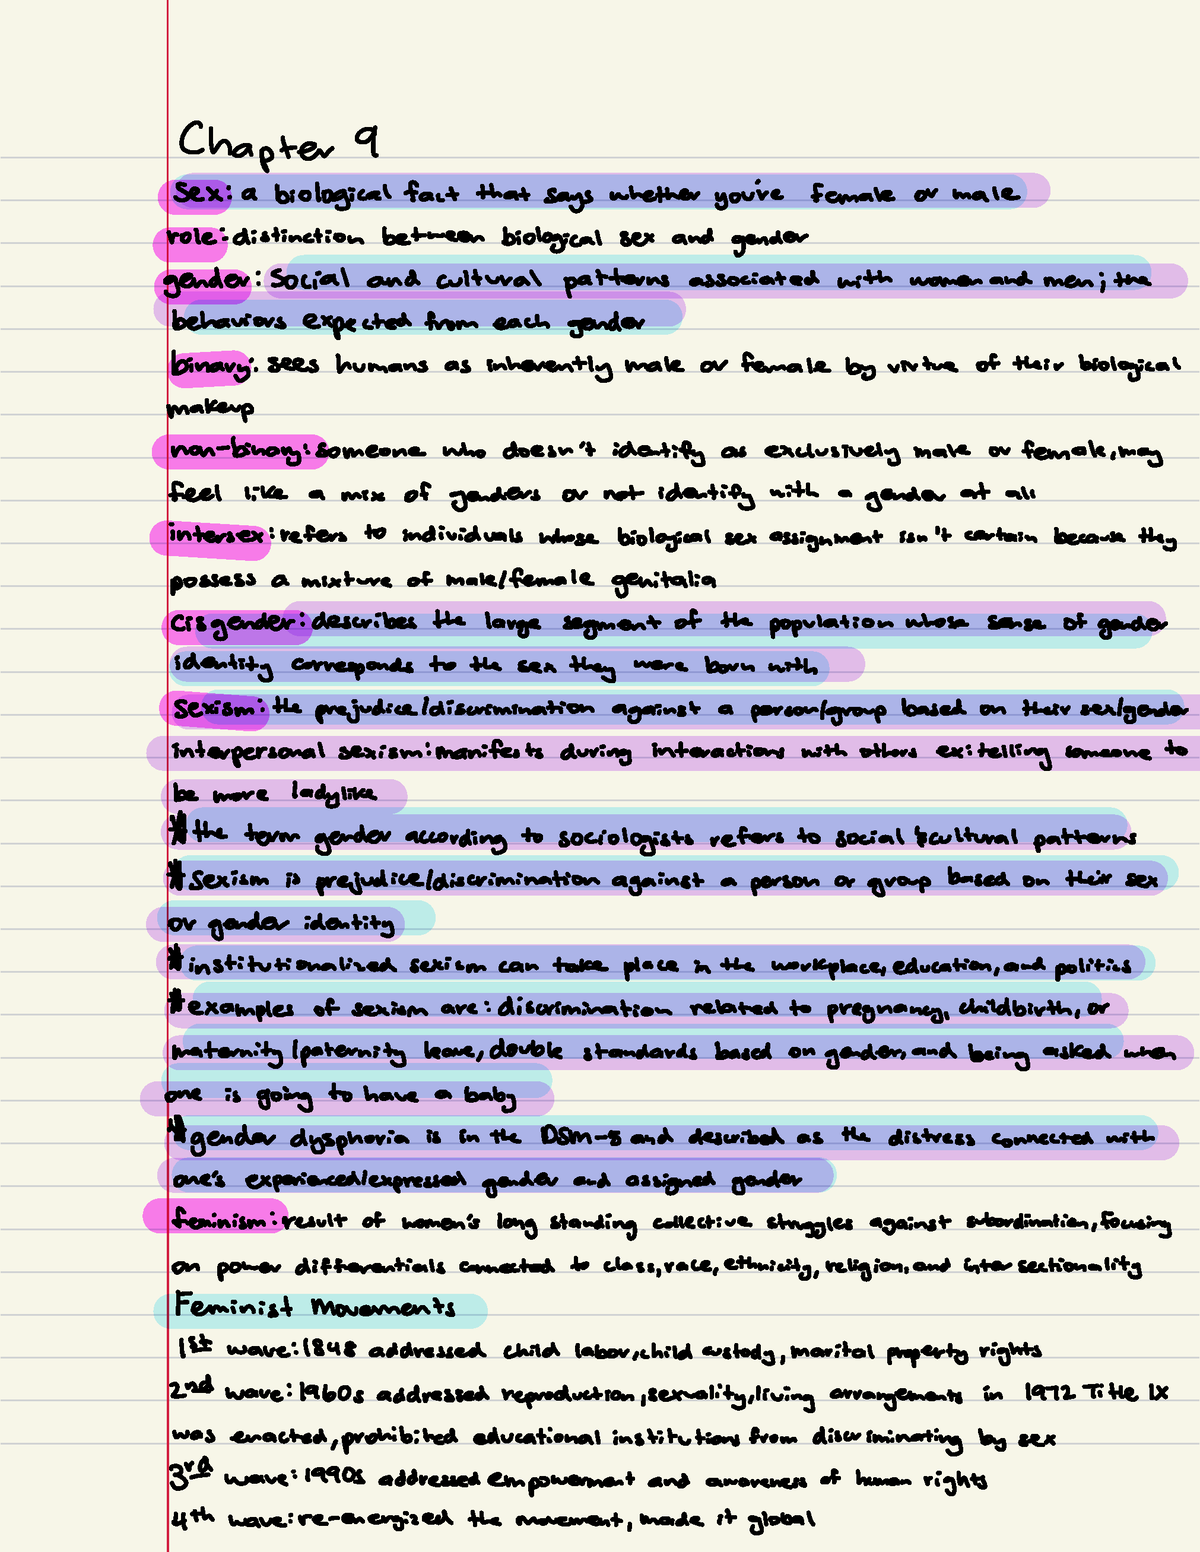 Chapter 9
Sex: a biological fact that says whether you're female or male
role: distinction between biological sex and gender
gender: Social and cultural patterns associated with women and men; the
behaviors expected from each gender
binary: sees humans as inherently male or female by virtue of their biological
makeup
non-binary: someone who doesn't identify as exclusively male or female, may
feel like a mix of genders or not identify with a gender at all
intersex: refers to individuals whose biological sex assignment isn't certain because they
possess a mixture of male/female genitalia
Cisgender: describes the large segment of the population whose sense of gender
identity corresponds to the sex they were born with
Sexism: the prejudice/discrimination against a person/group based on their sex/gender
interpersonal sexism: manifests during interactions with others ex: telling someone to
be more ladylike
# the term gender according to sociologists refers to social & cultural patterns
# Sexism is prejudice/discrimination against a person or group based on their sex
or gender identity
# institutionalized sexism can take place in the workplace, education, and politics
# examples of sexism are: discrimination related to pregnancy, childbirth, or
maternity/paternity leave, double standards based on gender, and being asked when
one is going to have a baby
# gender dysphoria is in the DSM-5 and described as the distress connected with
one's experienced/expressed gender and assigned gender
feminism: result of women's long standing collective struggles against subordination, focusing
on power differentials connected to class, race, ethnicity, religion, and intersectionality
Feminist Movements
1st wave: 1848 addressed child labor, child custody, marital property rights
2nd wave: 1960s addressed reproduction, sexuality, living arrangements in 1972 Title IX
was enacted, prohibited educational institutions from discriminating by sex
3rd wave: 1990s addressed empowerment and awareness of human rights
4th wave: re-energized the movement, made it global